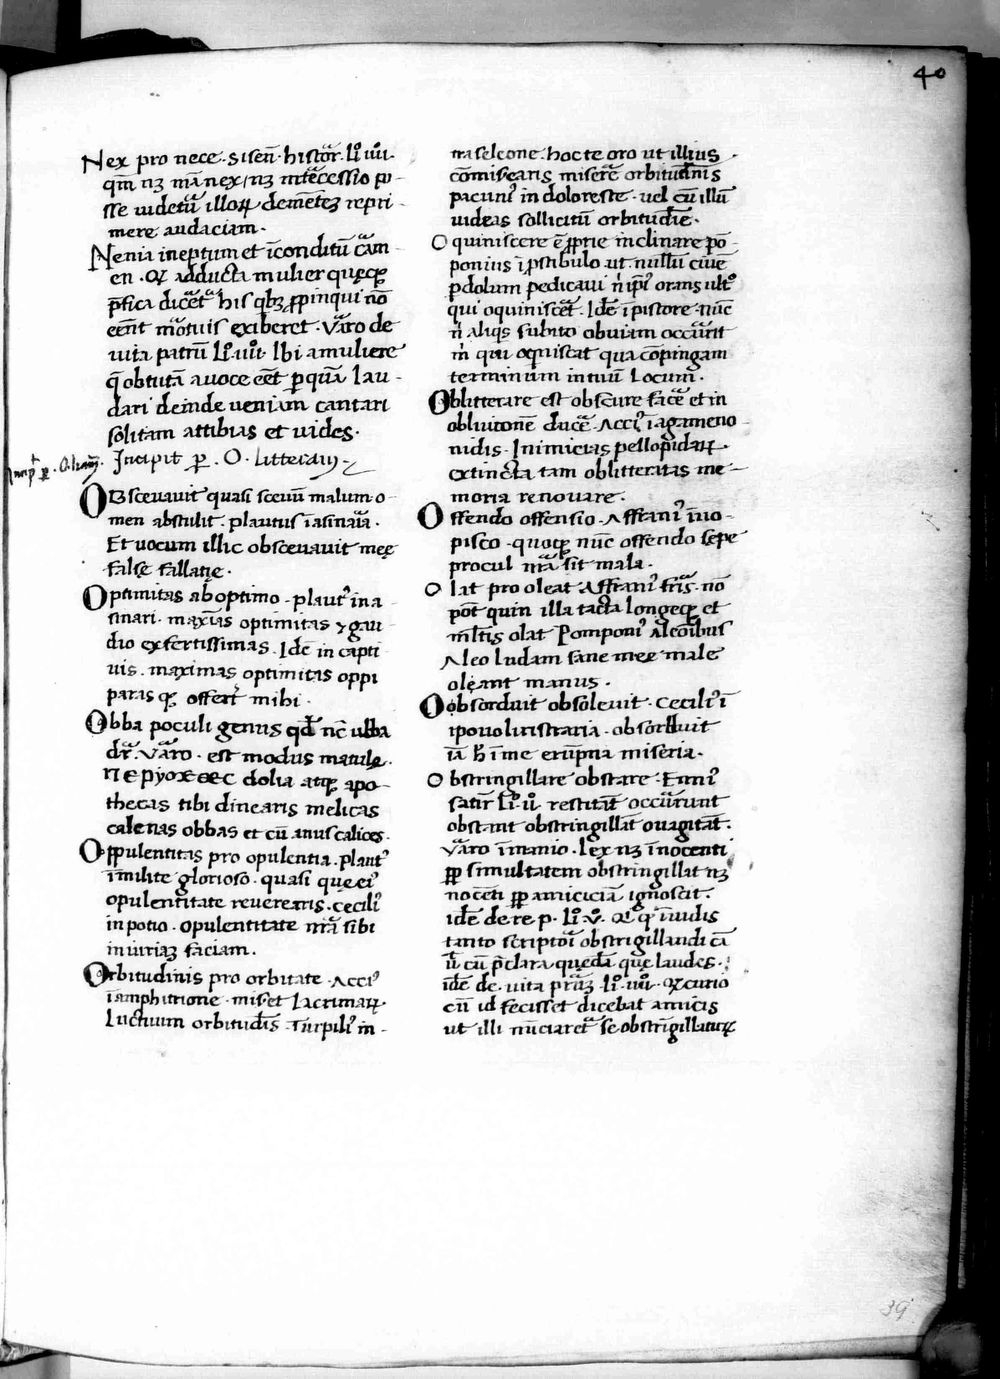 40
Nex pro nece. sisen̄. histor̄. li͞o iiii.
qm̄ nꝫ mā nex, nꝫ int̄cessio po
sse videt̄ illoꝝ dem̄tēꝫ repri-
mere audaciam.
Nenia ineptum et īconditū cām
en. qꝫ adducta mulier quęqꝫ
p̄fica dicēt his qbꝫ ꝓpinqui nō
eēnt m̄otuis exiberet. Vāro de
vita patrū li͞o iiii. Ibi a muliere
q̄ obtutā a voce eēt ꝑquā lau-
dari deinde veniam cantari
solitam attibias et vides.
Incipit ꝑ. O. litteram
Obscevavit quasi scevū malum o-
men abstulit. plautus ī asinaīa.
Et vocum illic obscevavit meę
falsę fallatię.
Optimitas ab optimo. plaut' in a
sinari. maxīas optimitas ⁊ gau
dio exfertissimas. Idē in capti
vis. maximas optimitas oppi
paras qꝫ offert mihi.
Obba poculi genus qd̄ nc̄ ubba
dr̄. Vāro. est modus matulę.
dolia atqꝫ apo-
thecas tibi dinearis melicas
calenas obbas et cū anus calices.
Oppulentitas pro opulentia. plaut'
ī milite glorioso. quasi que ei'
opulentitate revereāris. cecili'
in potio. opulentitate nrā sibi
iniuriaꝫ faciam.
Orbitudinis pro orbitate. Acci'
ī amphitrione. miset lacrimaꝝ
luctuum orbitudīs. Turpili' in-
tra selcone. hoc te oro ut illius
cōmisearis miserē orbitudinis
pacuni' in doloreste. vel cū illū
videas sollicitū orbitudīe.
Oquiniscere ē ꝓprie inclinare pō-
ponius ī ꝓstibulo ut nullū civē
ꝑdolum pedicavi n̄ ip̄i' orans ult°
qui oquiniscēt. Idē ī pistore. nūc
n̄ aliqs subito obviam occūrit
m̄ qui oquiscat qua cōpingam
terminum in tuū locum.
Oblitterare est obscure facē et in
oblivionē ducē. Acci' ī agameno
nidis. Inimicias pellopidaꝝ.
extincta tam oblitteratas me-
moria renovare.
Offendo offensio. Affrani' ī vo-
pisco. quoqꝫ nūc offendo sepe
procul nrā sit mala.
Olat pro oleat Affrani' frīs. nō
pot̄ quin illa tacta longeqꝫ et
mltīs olat Pomponi' Aleonibus
Aleo ludam sane meę male
olęant manus.
Oobsorduit obsolevit. Cecili' ī
ipovolimstraria. obsorduit
iā h̄ ī me erūpna miseria.
Obstringillare obstare. Enni'
satir̄ li͞o ii restitāt occūrunt
obstant obstringillāt ovagitāt.
Vāro ī manio. lex nꝫ īnocenti
ꝓp simultatem obstringillat nꝫ
nocēti ꝓp amiciciā ignoscit.
idē de re p. li͞o v. qꝫ q ī uidis
tanto scriptoī obstrigillandi cā
ū cū p̄clara quędā que laudes.
idē de vita pr̄ū. li͞o. iiii. qꝫ curio
cū id fecisset dicebāt amicis
ut illi nūciaret se obstrīgillaturꝫ
39